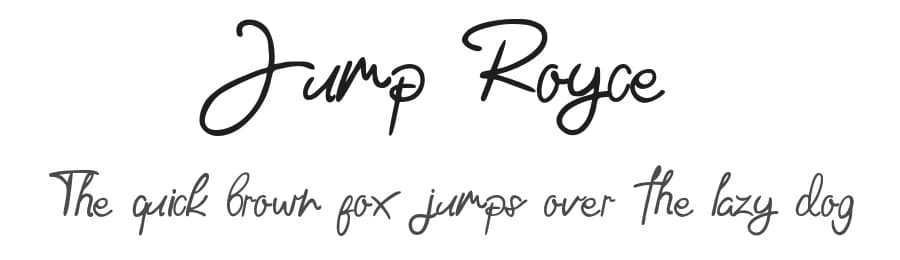 Jump Royce
The quick brown fox jumps over the lazy dog